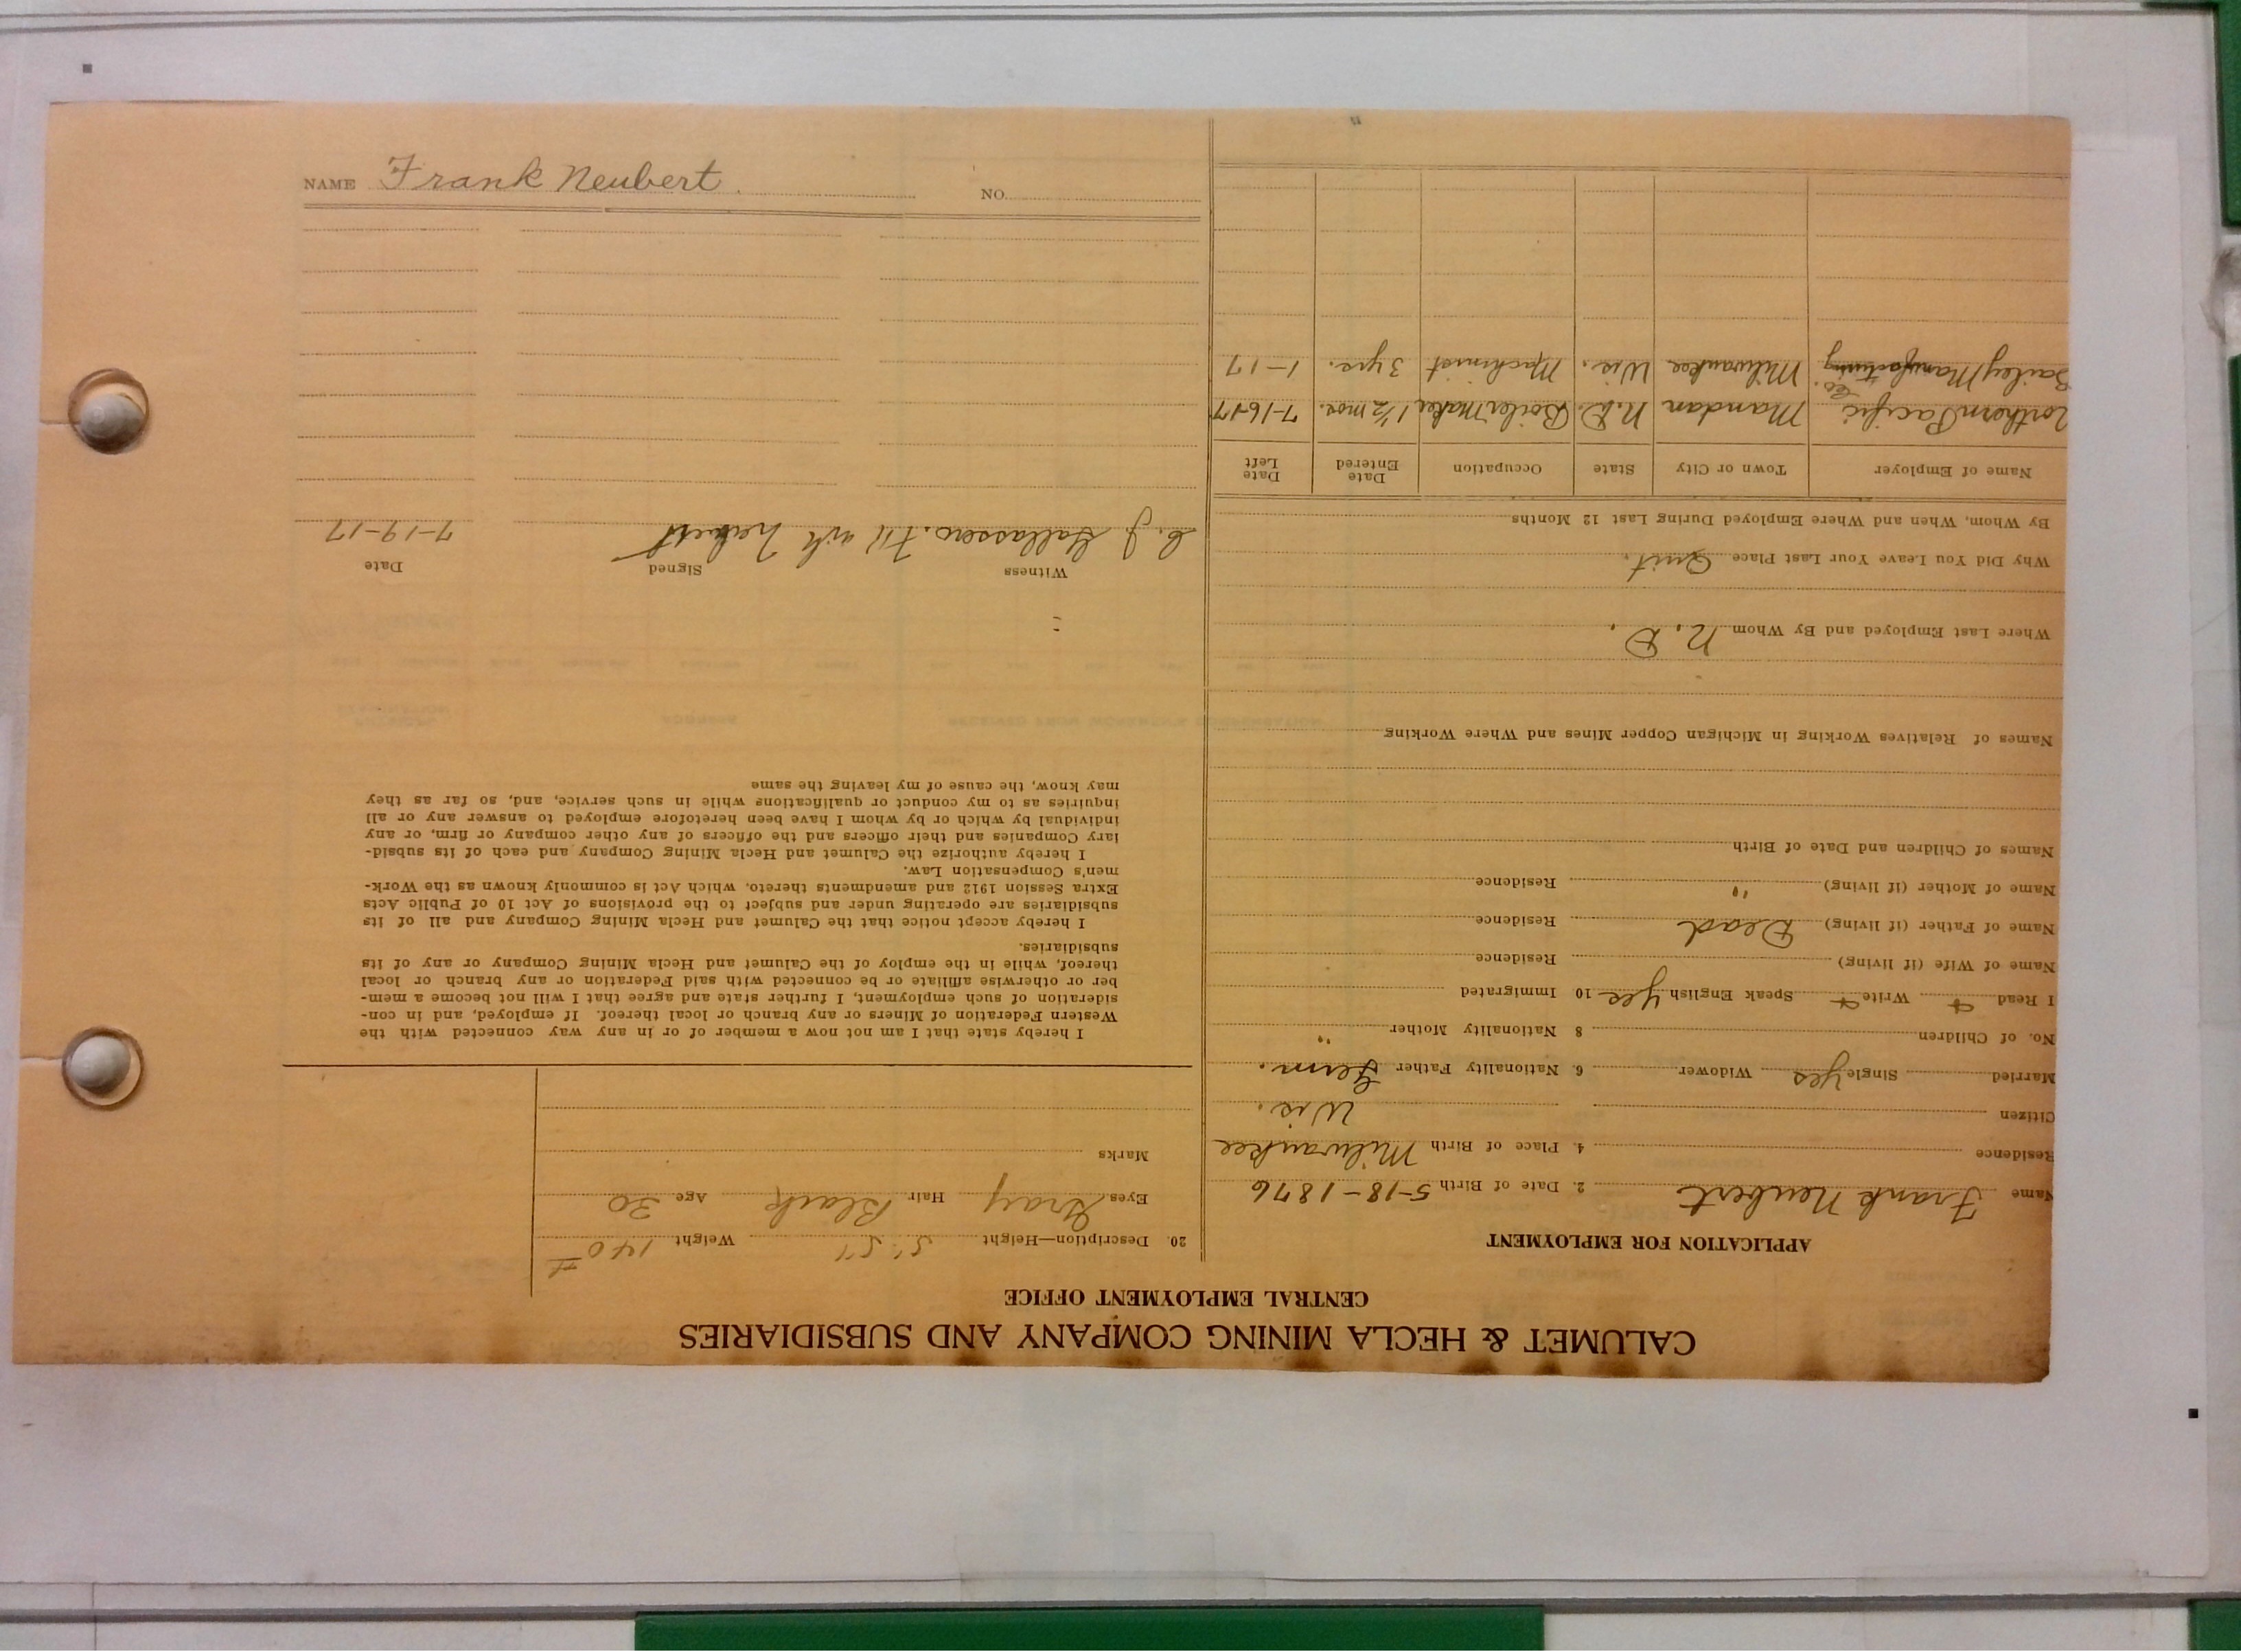 CALUMET & HECLA MINING COMPANY AND SUBSIDIARIES
CENTRAL EMPLOYMENT OFFICE
APPLICATION FOR EMPLOYMENT
Name Frank Neubert 2. Date of Birth 5-18-1876
Residence 4. Place of Birth Milwaukee
Citizen Wis.
Married Single yes Widower 6. Nationality Father Germ.
No. of Children 8 Nationality Mother "
I Read Write Speak English yes 10 Immigrated
Name of Wife (if living) Residence
Name of Father (if living) Dead Residence
Name of Mother (if living) " Residence
Names of Children and Date of Birth
Names of Relatives Working in Michigan Copper Mines and Where Working
Where Last Employed and By Whom N. D.
Why Did You Leave Your Last Place Quit.
By Whom, When and Where Employed During Last 12 Months
Name of Employer Town or City State Occupation Date Entered Date Left
Northern Pacific Mandan N.D. Boiler Maker 1 1/2 mos. 7-16-17
Bailey Manufacturing Co. Milwaukee Wis. Machinist 3 yrs. 1-17
20. Description—Height 5' 5" Weight 140
Eyes Gray Hair Black Age 30
Marks
I hereby state that I am not now a member of or in any way connected with the
Western Federation of Miners or any branch or local thereof. If employed, and in con-
sideration of such employment, I further state and agree that I will not become a mem-
ber or otherwise affiliate or be connected with said Federation or any branch or local
thereof, while in the employ of the Calumet and Hecla Mining Company or any of its
subsidiaries.
I hereby accept notice that the Calumet and Hecla Mining Company and all of its
subsidiaries are operating under and subject to the provisions of Act 10 of Public Acts
Extra Session 1912 and amendments thereto, which Act is commonly known as the Work-
men's Compensation Law.
I hereby authorize the Calumet and Hecla Mining Company and each of its subsid-
iary Companies and their officers and the officers of any other company or firm, or any
individual by which or by whom I have been heretofore employed to answer any or all
inquiries as to my conduct or qualifications while in such service, and, so far as they
may know, the cause of my leaving the same
Witness Signed Date
C. J. Neubert 7-19-17
NAME Frank Neubert. NO.